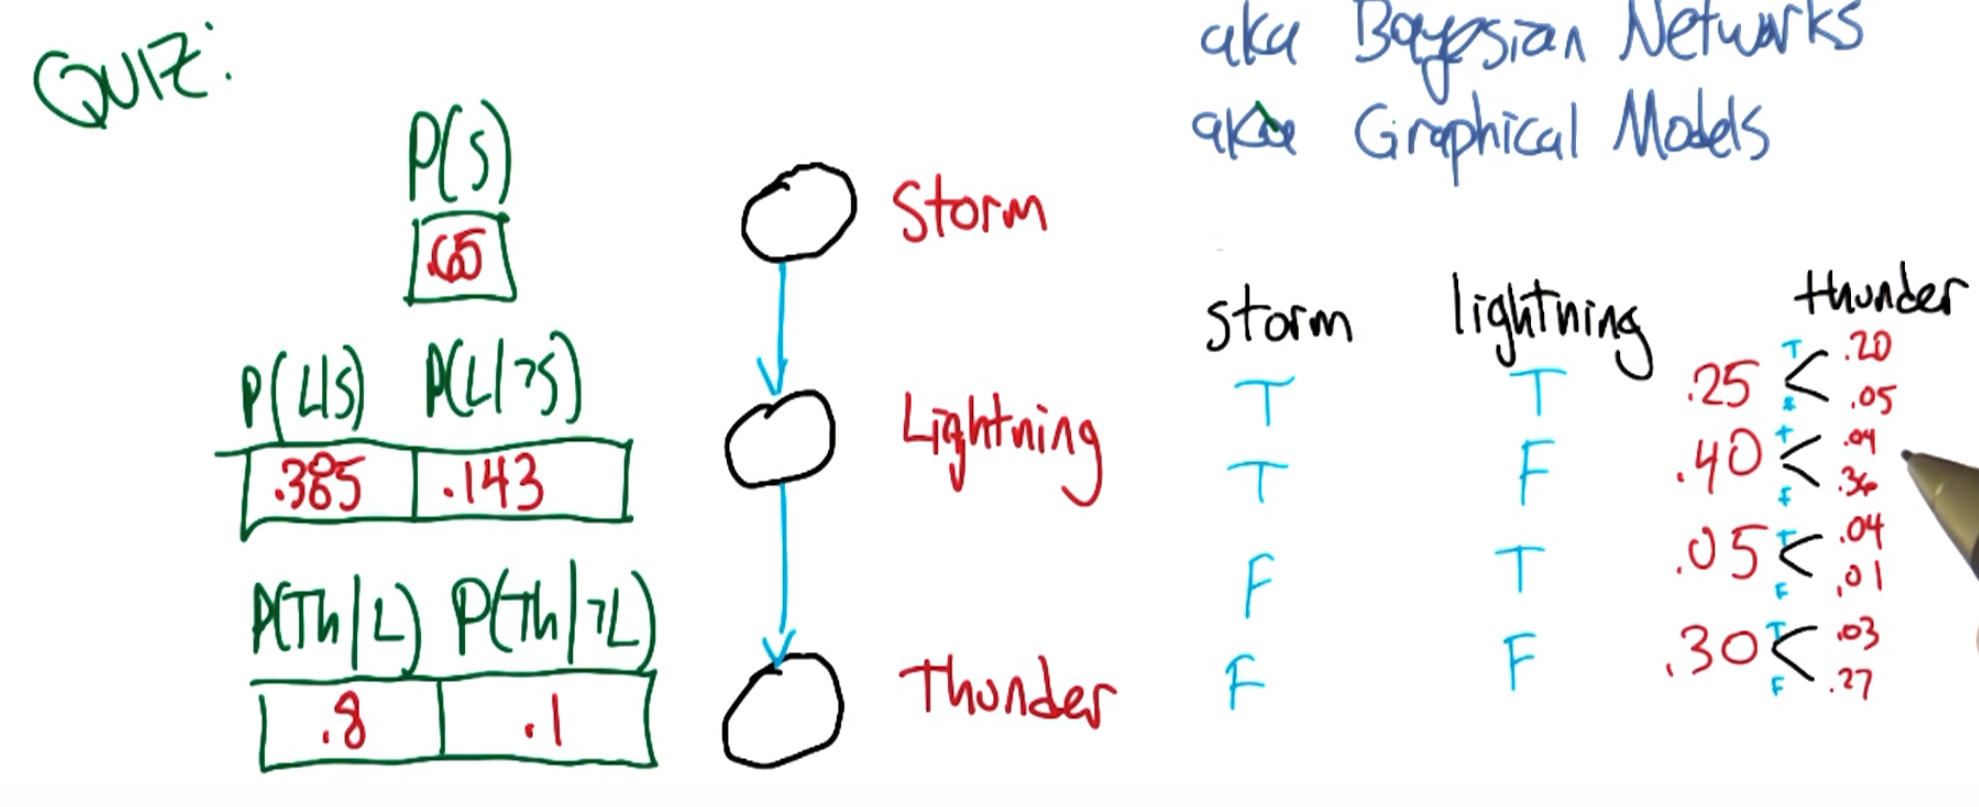 QUIZ:
aka Bayesian Networks
aka Graphical Models
P(S)
.65
Storm
P(L|S) P(L|¬S)
.385 .143
Lightning
P(Th|L) P(Th|¬L)
.8 .1
Thunder
storm lightning thunder
T T .25 T .20
F .05
T F .40 T .04
F .36
F T .05 T .04
F .01
F F .30 T .03
F .27